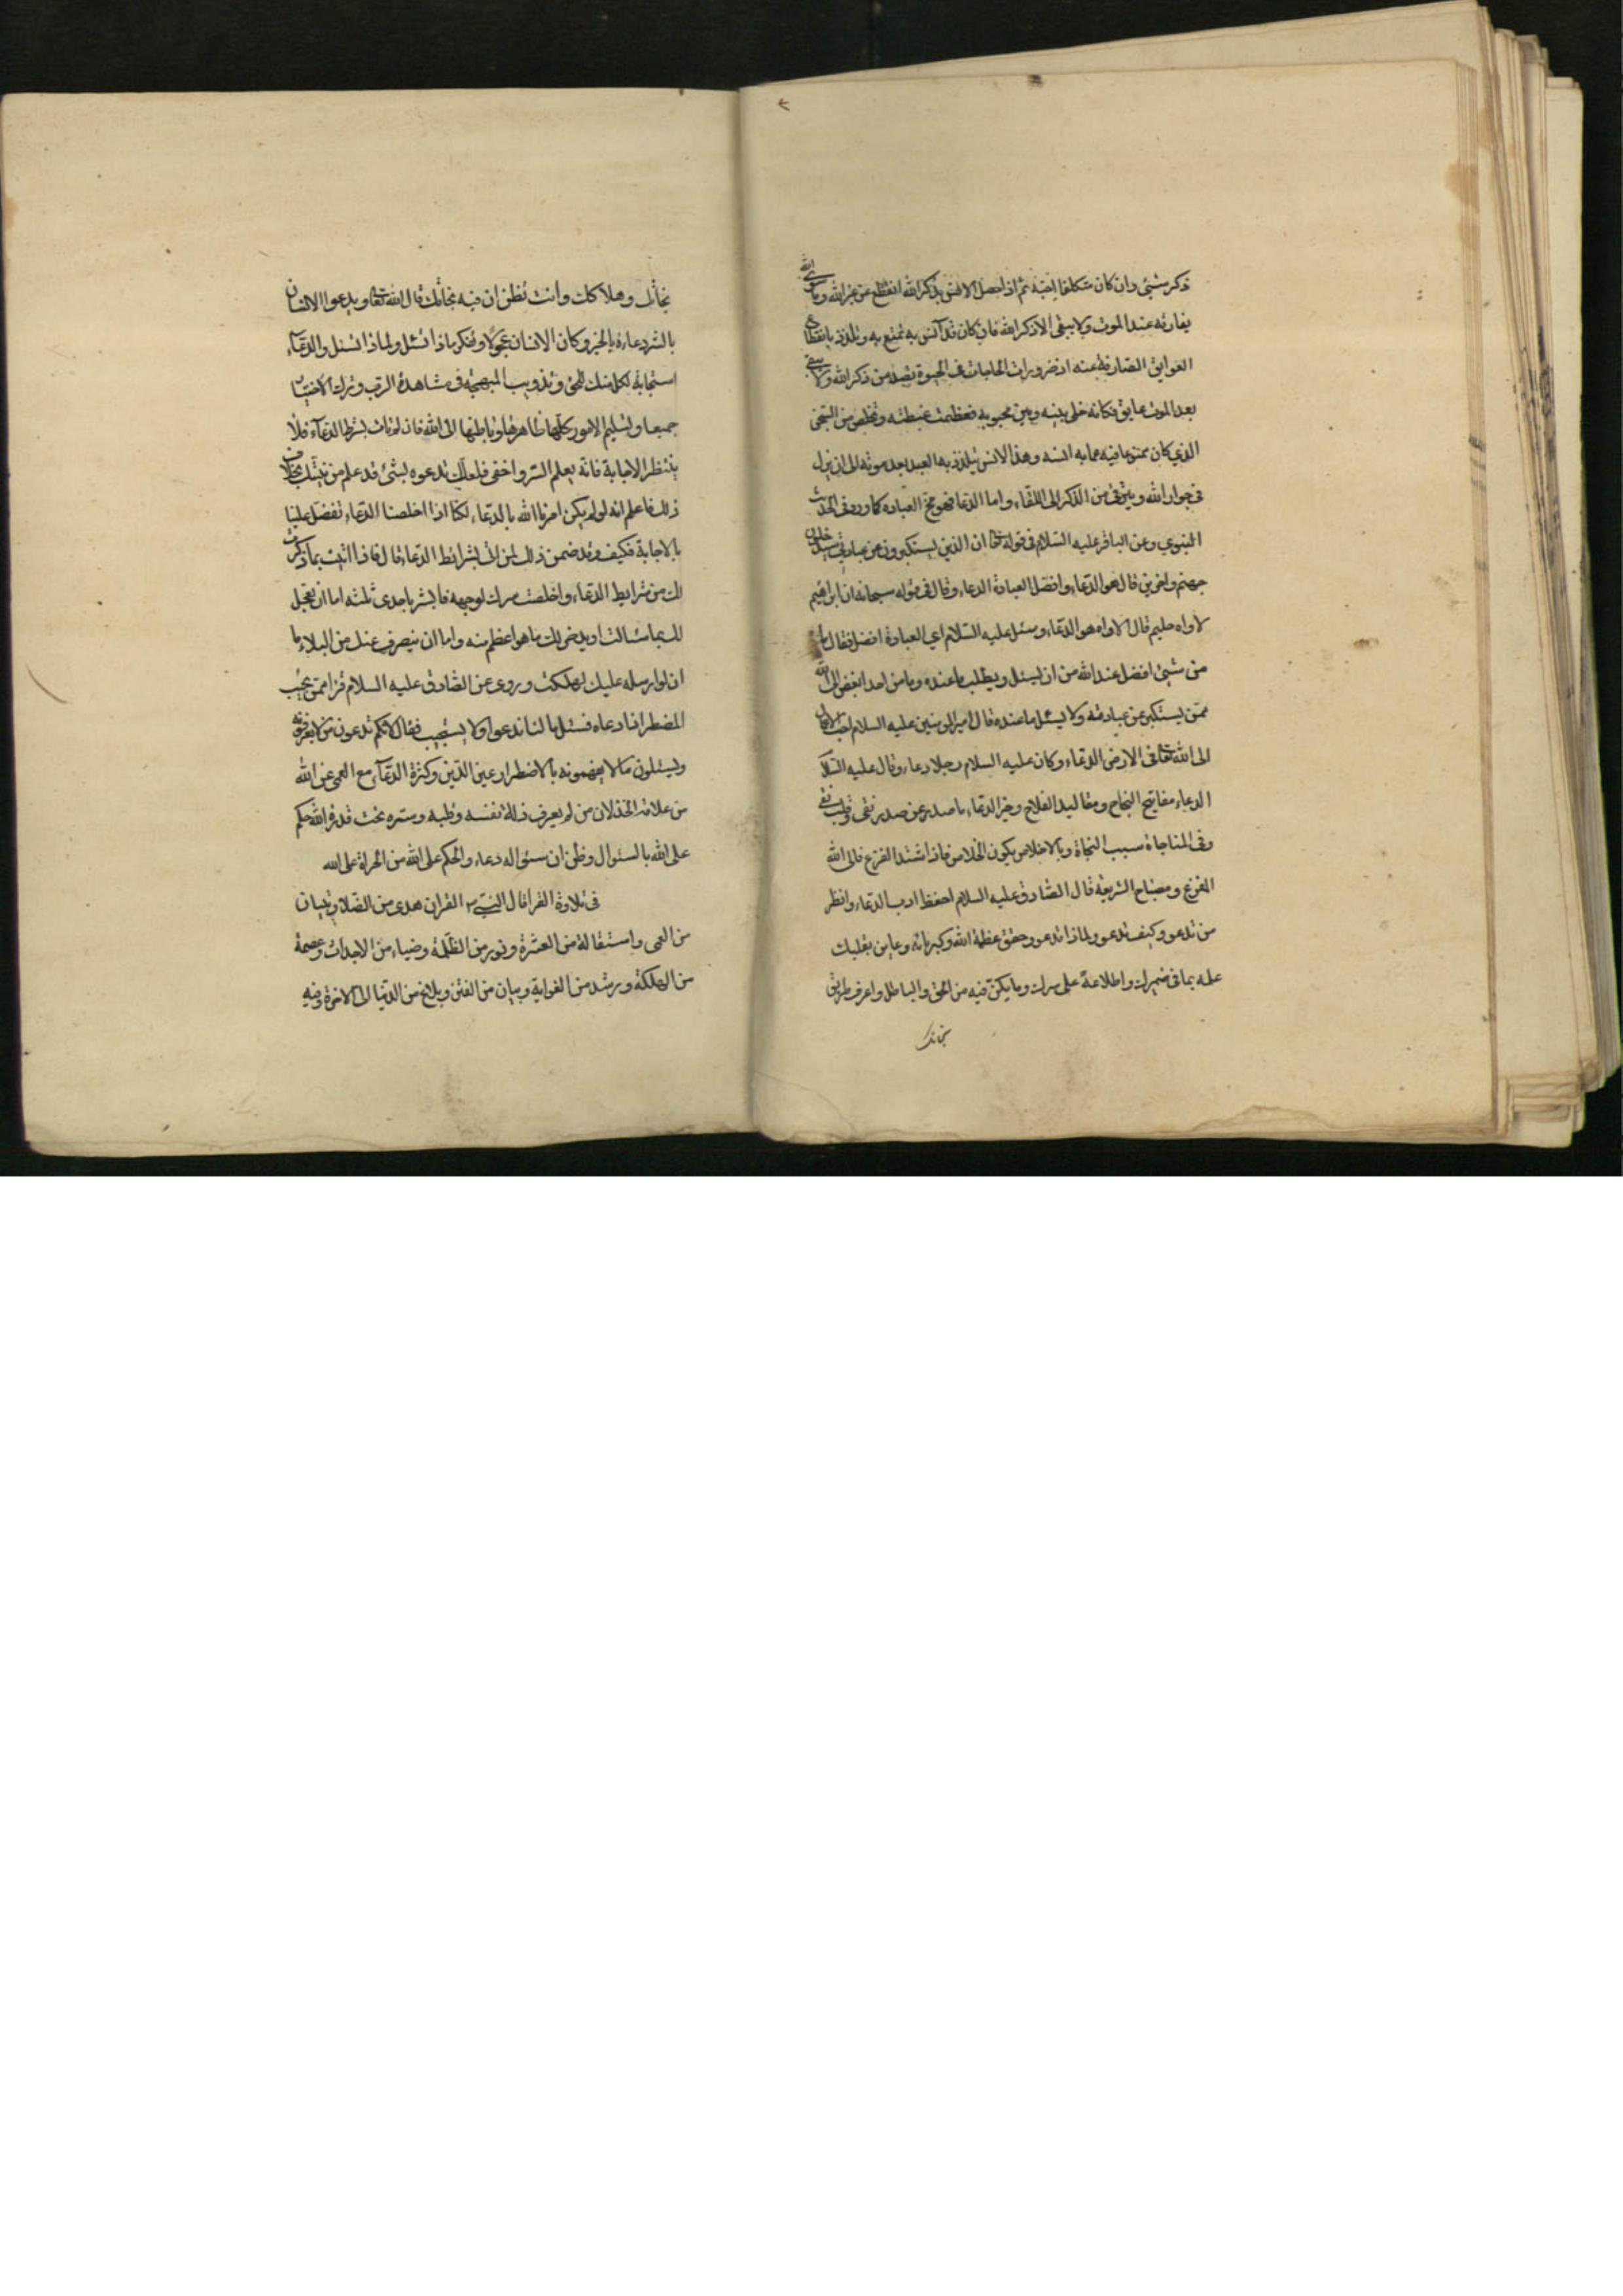 ذكر شيئ وان كان متكلفا احبه ثم اذا حصل الانس بذكر الله انقطع عن غير الله وما سوى الله
يفارقه عند الموت ولا يبقى الا ذكر الله فان كان قد آنس به تمتع به وتلذذ بانقطاع
العوايق الصارفة عنه اذ ضرورات الحاجات فى الحيوة تصد من ذكر الله ولا يبقى
بعد الموت عايق فكانه خلى بينه وبين محبوبه فعظمت غبطته وتخلص من السجن
الذي كان ممنوعا فيه عما به انسه وهذا الانس يتلذذ به العبد بعد موته الى ان ينزل
فى جوار الله ويترقى من الذكر الى اللقاء واما الدعا فهو مخ العبادة كما ورد فى الحديث
النبوي وعن الباقر عليه السلام فى قوله تعا ان الذين يستكبرون عن عبادتي سيدخلون
جهنم واخرين قال هو الدعاء وافضل العبادة الدعاء وقال فى قوله سبحانه ان ابراهيم
لاواه حليم قال الاواه هو الدعاء وسئل عليه السلام اي العبادة افضل فقال ما
من شيئ افضل عند الله من ان يسئل ويطلب ما عنده وما من احد ابغض الى الله
ممن يستكبر عن عبادته ولا يسئل ما عنده قال امير المومنين عليه السلام احب الاعمال
الى الله تعا فى الارض الدعاء وكان عليه السلام رجلا دعاء وقال عليه السلا
الدعاء مفاتيح النجاح ومقاليد الفلاح وخير الدعاء ما صدر عن صدر نقى وقلب تقى
وفى المناجاة سبب النجاة وبالاخلاص يكون الخلاص فاذا اشتد الفزع فالى الله
المفزع ومصباح الشريعة قال الصادق عليه السلام احفظ ادب الدعاء وانظر
من تدعو وكيف تدعو ولماذا تدعو وحقق عظمة الله وكبريائه وعاين بقلبك
علمه بما فى ضميرك واطلاعه على سرك وما يكن فيه من الحق والباطل واعرف طريق
نجاتك
نجاتك وهلاكك وانت تظن ان فيه نجاتك قال الله تعا ويدعوا الانسان
بالشر دعاءه بالخير وكان الانسان عجولا وتفكر ماذا تسئل ولماذا تسئل والدعاء
استجابة لكل منك للحق وتذويب المهجة فى مشاهدة الرب وترك الاختيار
جميعا وتسليم الامور كلها ظاهرها وباطنها الى الله فان لم تات بشرط الدعاء فلا
ينتظر الاجابة فانه يعلم السر واخفى فلعلك تدعوه بشئ قد علم من نيتك بخلاف
ذلك فاعلم انه لو لم يكن امرنا الله بالدعاء لكنا اذا اخلصنا الدعاء تفضل علينا
بالاجابة فكيف وقد ضمن ذلك لمن اتى بشرائط الدعاء قال فاذا اتيت بما ذكرت
لك من شرايط الدعاء واخلصت سرك لوجهه فابشر باحدى ثلثة اما ان يعجل
لك بما سئالت او يدخر لك ما هو اعظم منه واما ان يصرف عنك من البلاء ما
ان لو ارسله عليك لهلكت وروى عن الصادق عليه السلام قرا امن يجيب
المضطر اذا دعاه فسئل ما لنا ندعوا ولا يستجيب فقال لانكم تدعون من لا تعرفونه
وتسئلون مالا تفهمونه بالاضطرار عين الدين وكثرة الدعاء مع العمى عن الله
من علامة الخذلان من لم يعرف ذلة نفسه وقلبه وسره تحت قدرة الله حكم
على الله بالسئوال وظن ان سئواله دعاء والحكم على الله من الجراة على الله
فى تلاوة القرا قال النبي القران هدى من الضلال وتبيان
من العمى واستقالة من العثرة ونور من الظلمة وضياء من الاحداث وعصمة
من الهلكة ورشد من الغواية وبيان من الفتن وبلاغ من الدنيا الى الاخرة وفيه